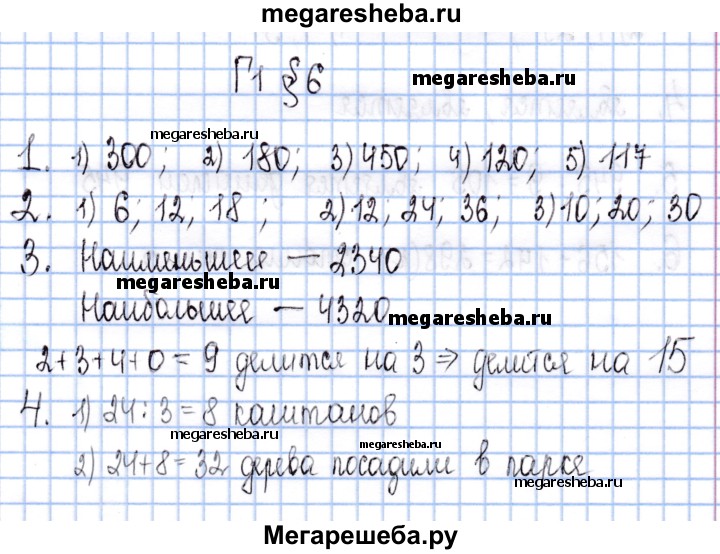 megaresheba.ru
Г1 §6
megaresheba.ru
megaresheba.ru
1. 1) 300; 2) 180; 3) 450; 4) 120; 5) 117
2. 1) 6; 12; 18; 2) 12; 24; 36; 3) 10; 20; 30
3. Наименьшее — 2340
Наибольшее — 4320
megaresheba.ru
2+3+4+0=9 делится на 3 ⇒ делится на 15
4. 1) 24:3=8 каштанов
megaresheba.ru
megaresheba.ru
2) 24+8=32 дерева посадили в парке
megaresheba.ru
Мегарешеба.ру